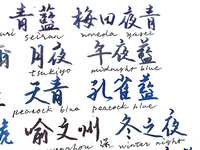 青藍 梅田夜青
seiran umeda yasei
雨 月夜 午夜藍
tsukiyo midnight blue
天青 孔雀藍
peacock blue peacock blue
喻文州 冬之夜
winter night